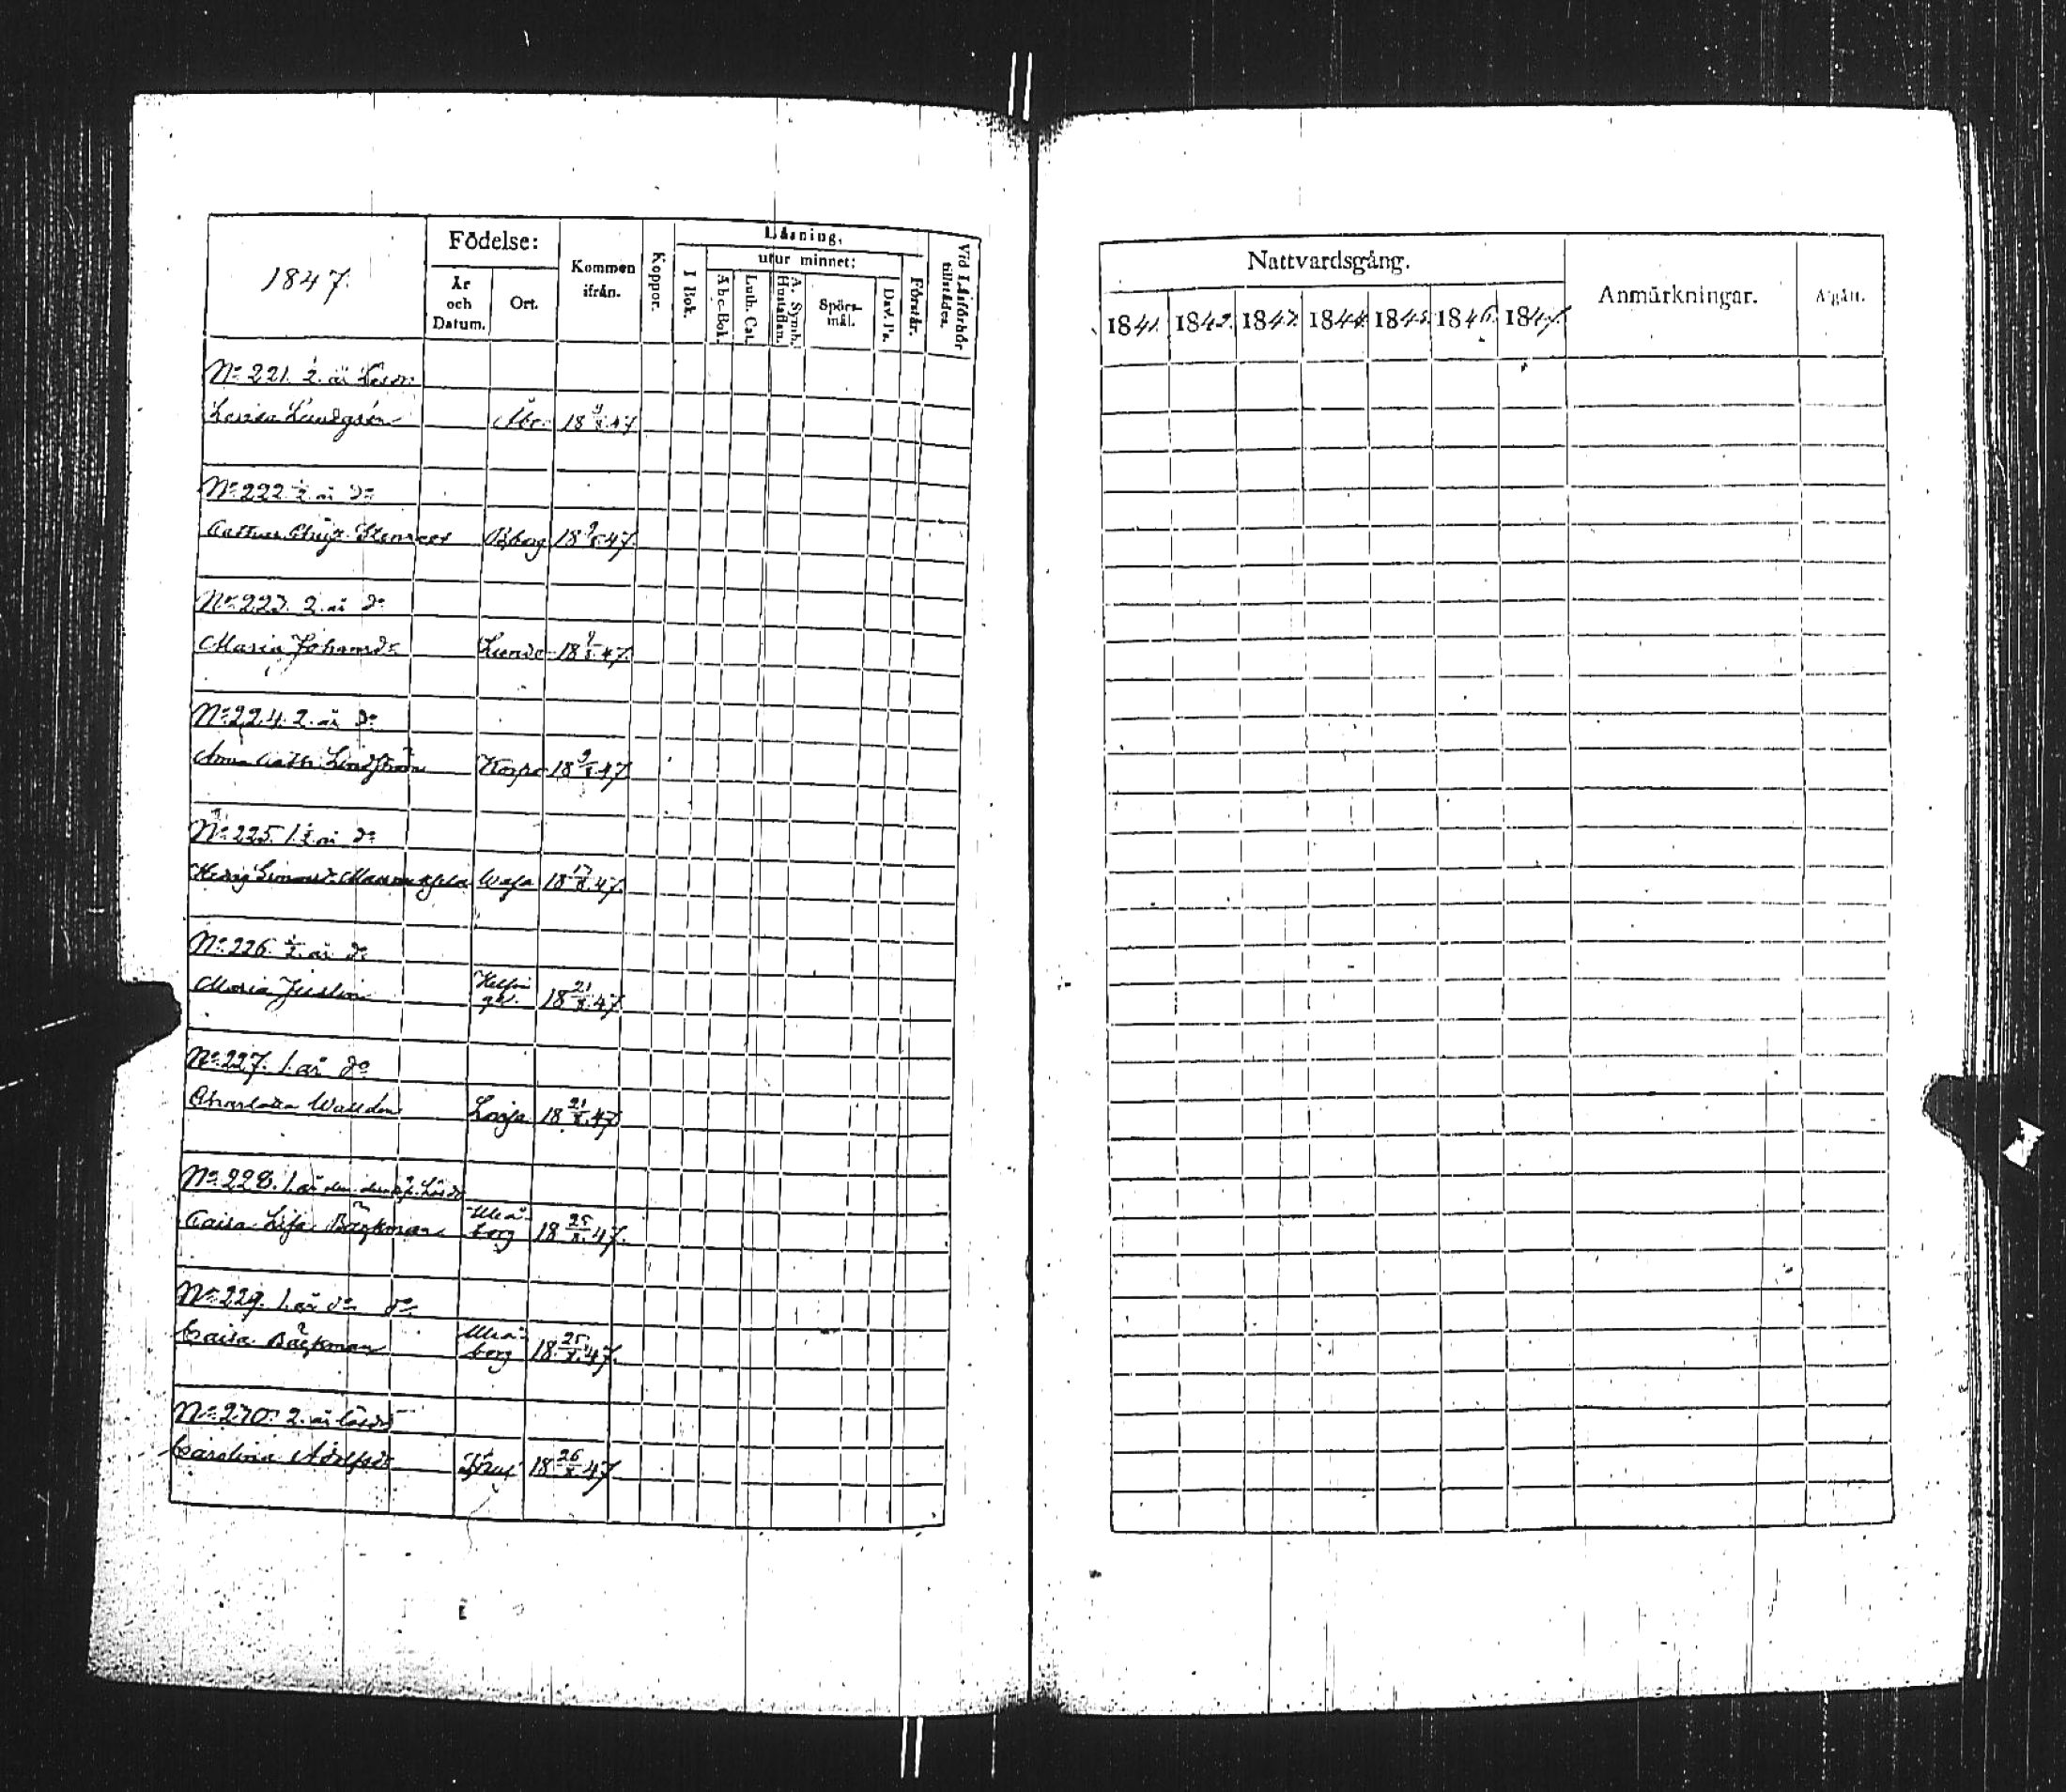 1847.
Födelse:
År och Datum.
Ort.
Kommen ifrån.
Koppor.
Läsning,
I Bok.
utur minnet:
Abc-Bok.
Luth. Cat.
A. Symb. Hustaflan.
Spörsmål.
Dav. Ps.
Förstår.
Vid Läsförhör tillstädes.
No 221. ½ år
Lovisa Lundgrén Åbo 18 9/8 47
No 222 ½ år do
18 9/8 47.
No 223. 2. år do
Maria Johansdr 18 9/8 47.
No 224. 2. år do
Anna Cath. Lindström Korpo 18 9/8 47
No 225. 1½ år do
Wasa 18 17/8 47.
No 226. ½ år do
Maria Juslin 18 21/8 47.
No 227. 1. år do
Charlotta Walldén Lojo 18 21/8 47
No 228. 1. år
Caisa Lisa Bäckman Uleåborg 18 25/8 47.
No 229. 1. år do do
Caisa Bäckman Uleåborg 18 25/8 47.
No 230. 2. år
Carolina Adolfsdr 18 26/8 47
Nattvardsgång.
1841. 1842. 1843. 1844. 1845. 1846. 1847.
Anmärkningar.
Afgått.